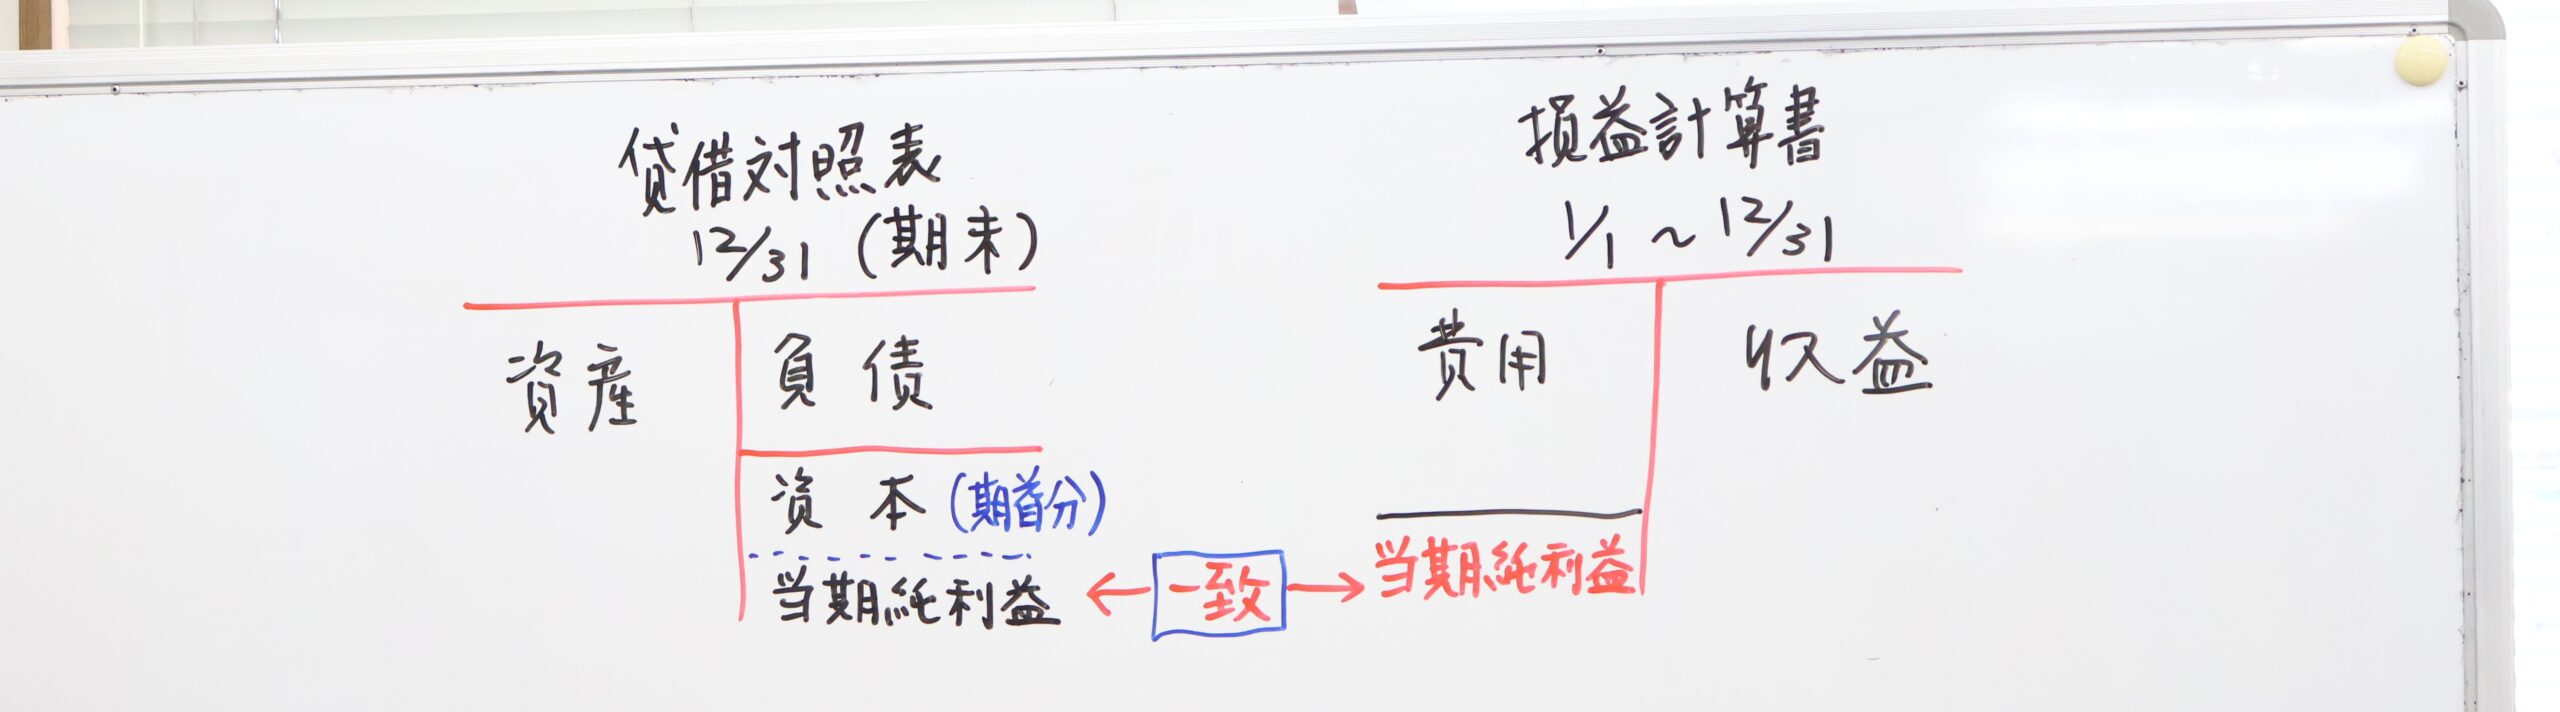 貸借対照表
12/31 (期末)
資産
負債
資本 (期首分)
当期純利益
一致
損益計算書
1/1 ~ 12/31
費用
収益
当期純利益